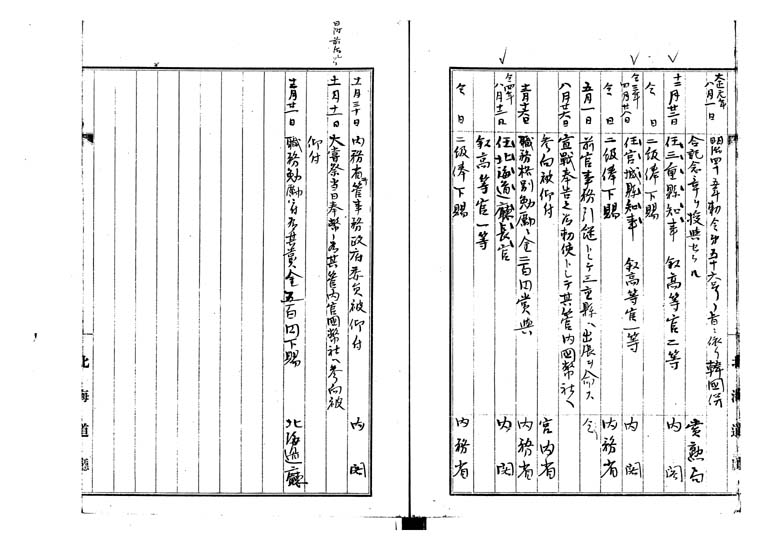 大正元年八月一日 明治四十五年勅令第五十六号ノ旨ニ依リ韓國併
合記念章ヲ授與セラル 賞勲局
十二月廿三日 任三重縣知事 叙高等官二等 内閣
仝日 二級俸下賜
仝三年四月廿八日 任宮城縣知事 叙高等官一等 内閣
仝日 二級俸下賜 内務省
五月一日 前官事務引継トシテ三重縣ヘ出張ヲ命ス 仝
八月廿六日 宣戰奉告之為勅使トシテ其管内國幣社ヘ
参向被仰付 宮内省
職務格別勉勵ニ付金三百円賞與 内務省
仝四年八月十二日 任北海道廳長官 内閣
叙高等官一等
仝日 二級俸下賜 内務省
十月三十日 内務省所管事務政府委員被仰付 内閣
大嘗祭當日奉幣ノ為其管内官國幣社ヘ参向被
仰付
職務勉勵ニ付其賞金五百円下賜 北海道廳
北海道廳
北海道廳